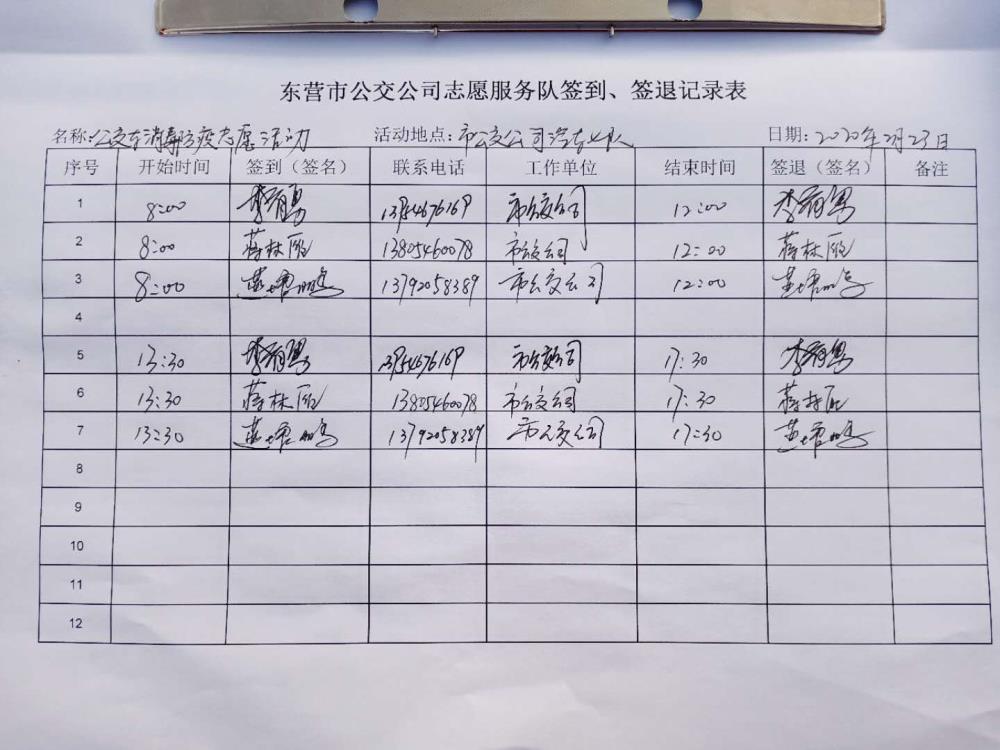 东营市公交公司志愿服务队签到、签退记录表
名称:公交车消毒防疫志愿活动 活动地点:市公交公司汽车队 日期:2020年2月23日
序号 开始时间 签到（签名） 联系电话 工作单位 结束时间 签退（签名） 备注
1 8:00 13954676169 市公交公司 12:00
2 8:00 蒋林 13805460078 市公交公司 12:00 蒋林
3 8:00 13792058389 市公交公司 12:00
4
5 13:30 13954676169 市公交公司 17:30
6 13:30 蒋林 13805460078 市公交公司 17:30 蒋林
7 13:30 13792058389 市公交公司 17:30
8
9
10
11
12